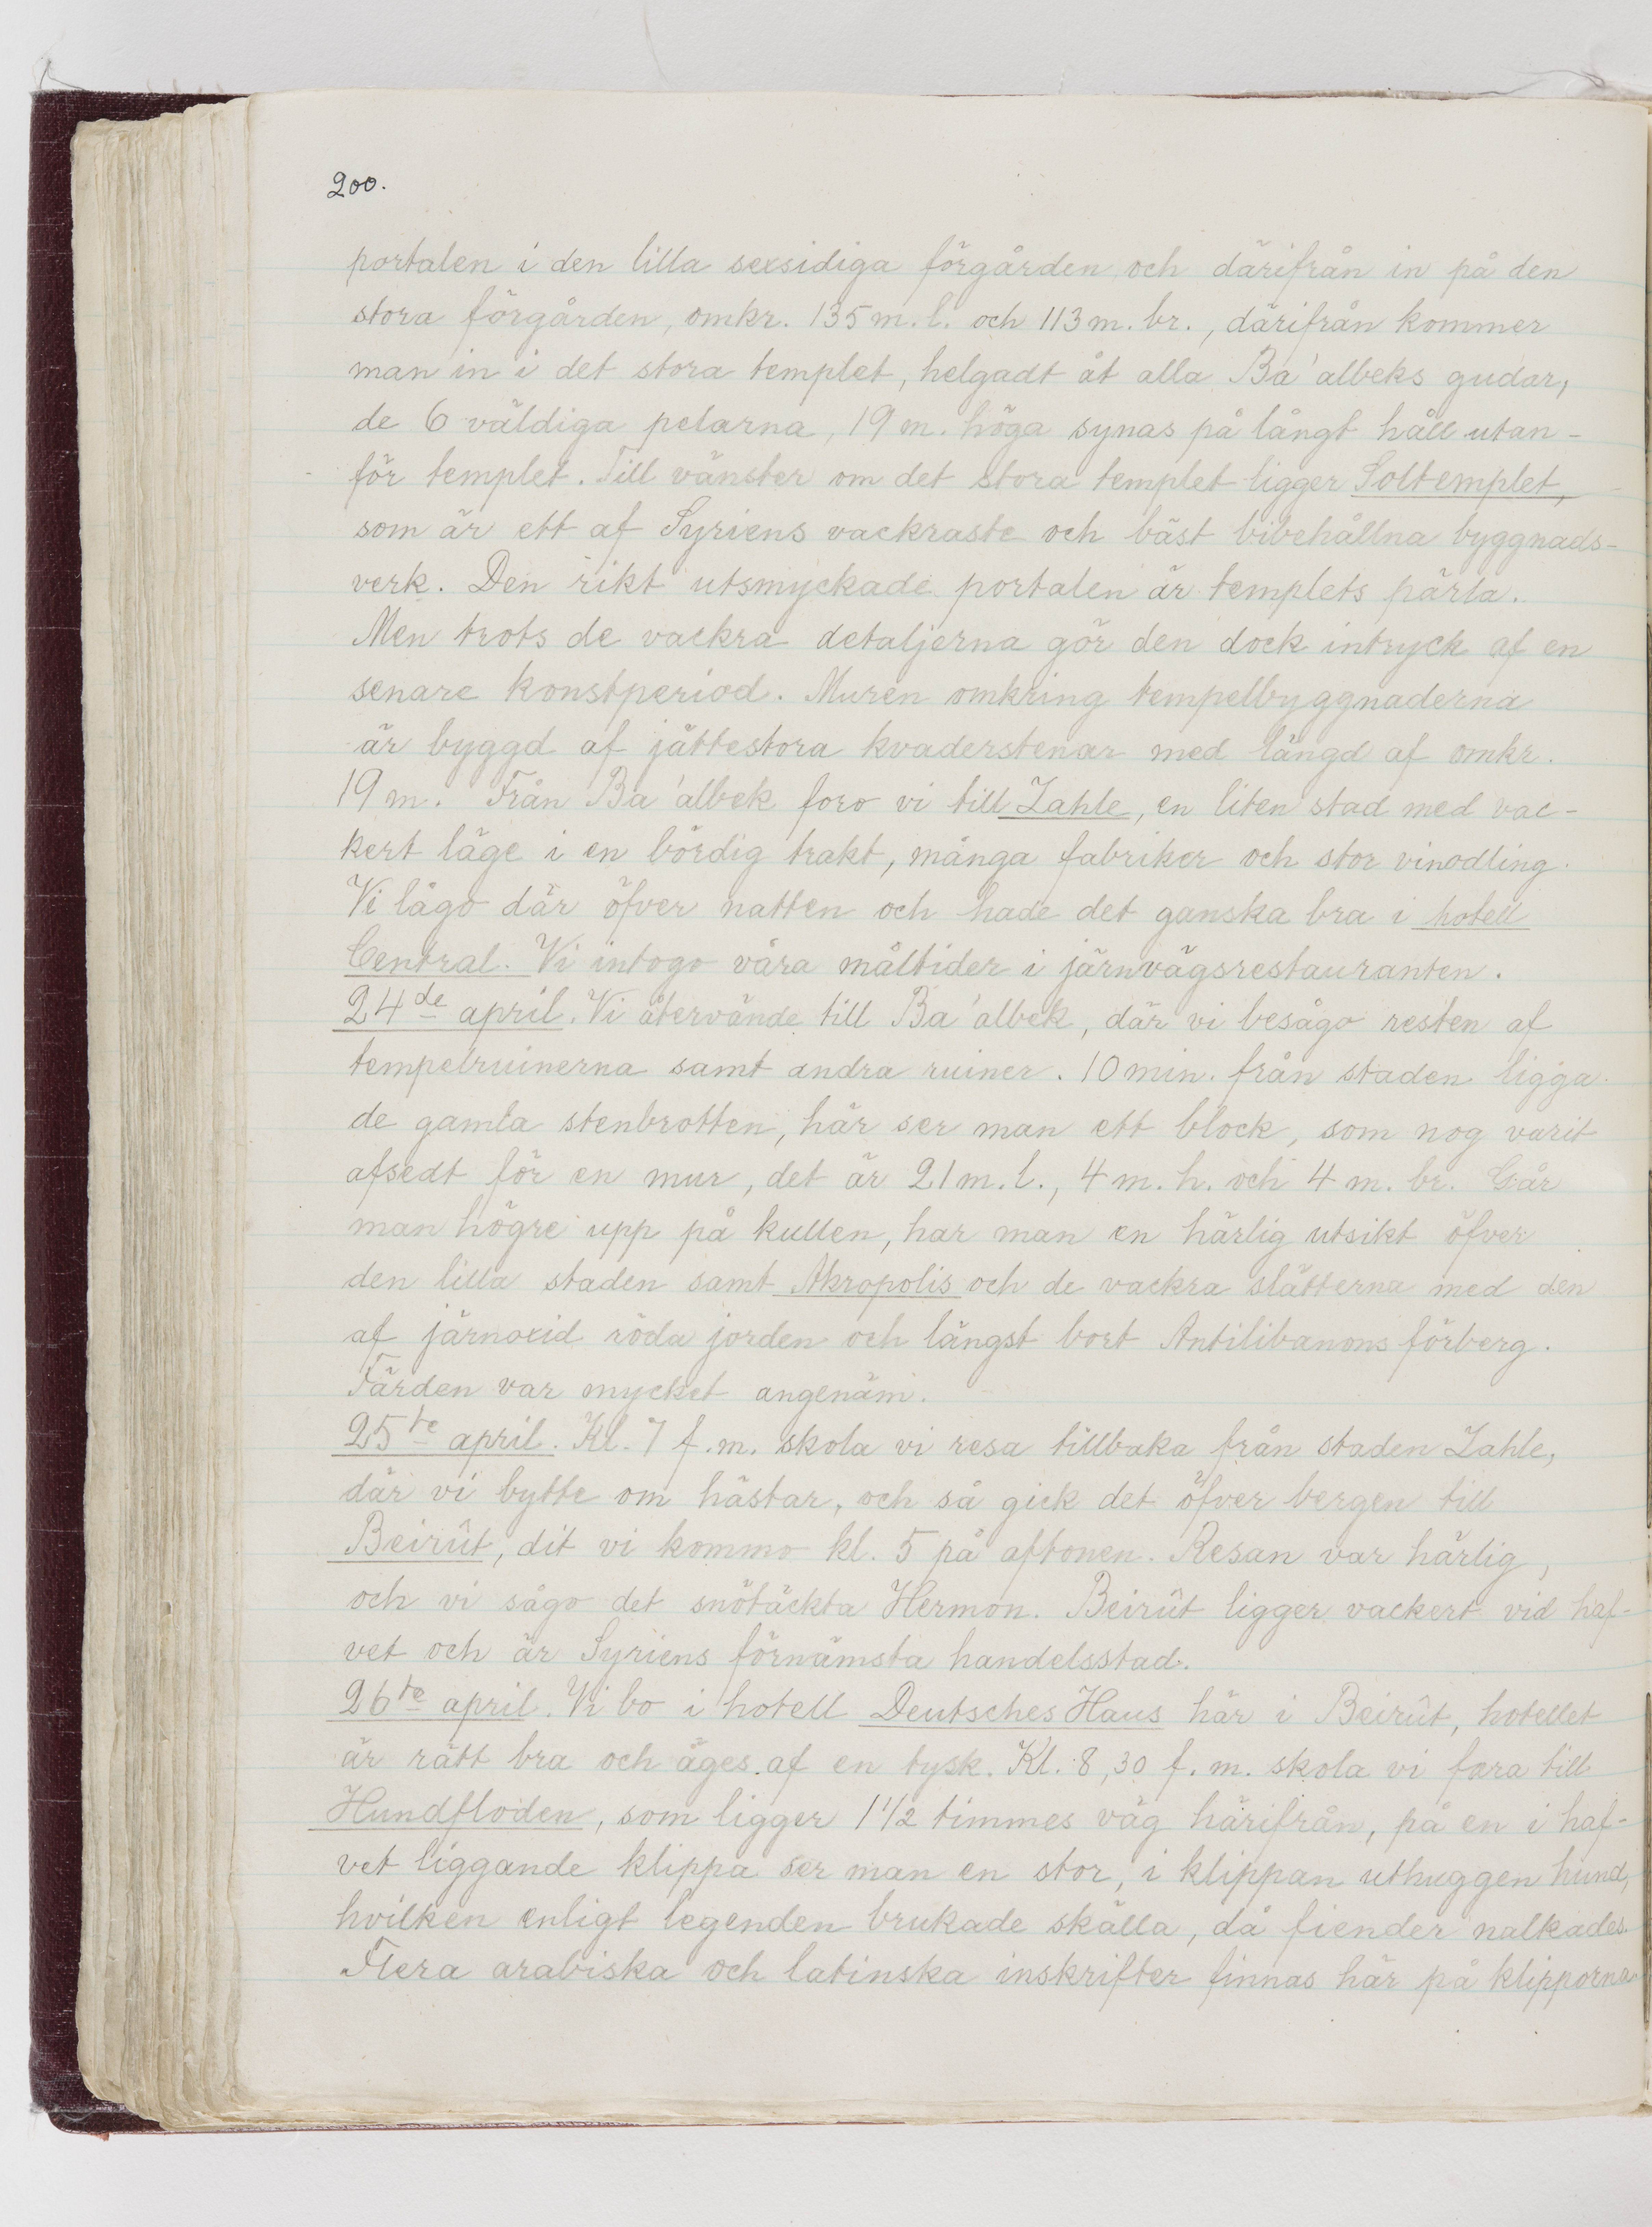 200.
portalen i den lilla sexsidiga förgården och därifrån in på den
stora förgården, omkr. 135 m. l. och 113 m. br., därifrån kommer
man in i det stora templet, helgadt åt alla Ba'albeks gudar,
de 6 väldiga pelarna, 19 m. höga synas på långt håll utan-
för templet. Till vänster om det stora templet ligger Soltemplet,
som är ett af Syriens vackraste och bäst bibehållna byggnads-
verk. Den rikt utsmyckade portalen är templets pärla.
Men trots de vackra detaljerna gör den dock intryck af en
senare konstperiod. Muren omkring tempelbyggnaderna
är byggd af jättestora kvaderstenar med längd af omkr.
19 m. Från Ba'albek foro vi till Zahle, en liten stad med vac-
kert läge i en bördig trakt, många fabriker och stor vinodling.
Vi lågo där öfver natten och hade det ganska bra i hotell
Central. Vi intogo våra måltider i järnvägsrestauranten.
24de april. Vi återvände till Ba'albek, där vi besågo resten af
tempelruinerna samt andra ruiner. 10 min. från staden ligga
de gamla stenbrotten, här ser man ett block, som nog varit
afsedt för en mur, det är 21 m. l., 4 m. h. och 4 m. br. Går
man högre upp på kullen, har man en härlig utsikt öfver
den lilla staden samt Akropolis och de vackra slätterna med den
af järnoxid röda jorden och längst bort Antilibanons förberg.
Färden var mycket angenäm.
25te april. Kl. 7 f.m. skola vi resa tillbaka från staden Zahle,
där vi bytte om hästar, och så gick det öfver bergen till
Beirût, dit vi kommo kl. 5 på aftonen. Resan var härlig,
och vi sågo det snötäckta Hermon. Beirût ligger vackert vid haf-
vet och är Syriens förnämsta handelsstad.
26te april. Vi bo i hotell Deutsches Haus här i Beirût, hotellet
är rätt bra och äges af en tysk. Kl. 8,30 f. m. skola vi fara till
Hundfloden, som ligger 1 1/2 timmes väg härifrån, på en i haf-
vet liggande klippa ser man en stor, i klippan uthuggen hund,
hvilken enligt legenden brukade skälla, då fiender nalkades.
Flera arabiska och latinska inskrifter finnas här på klipporna